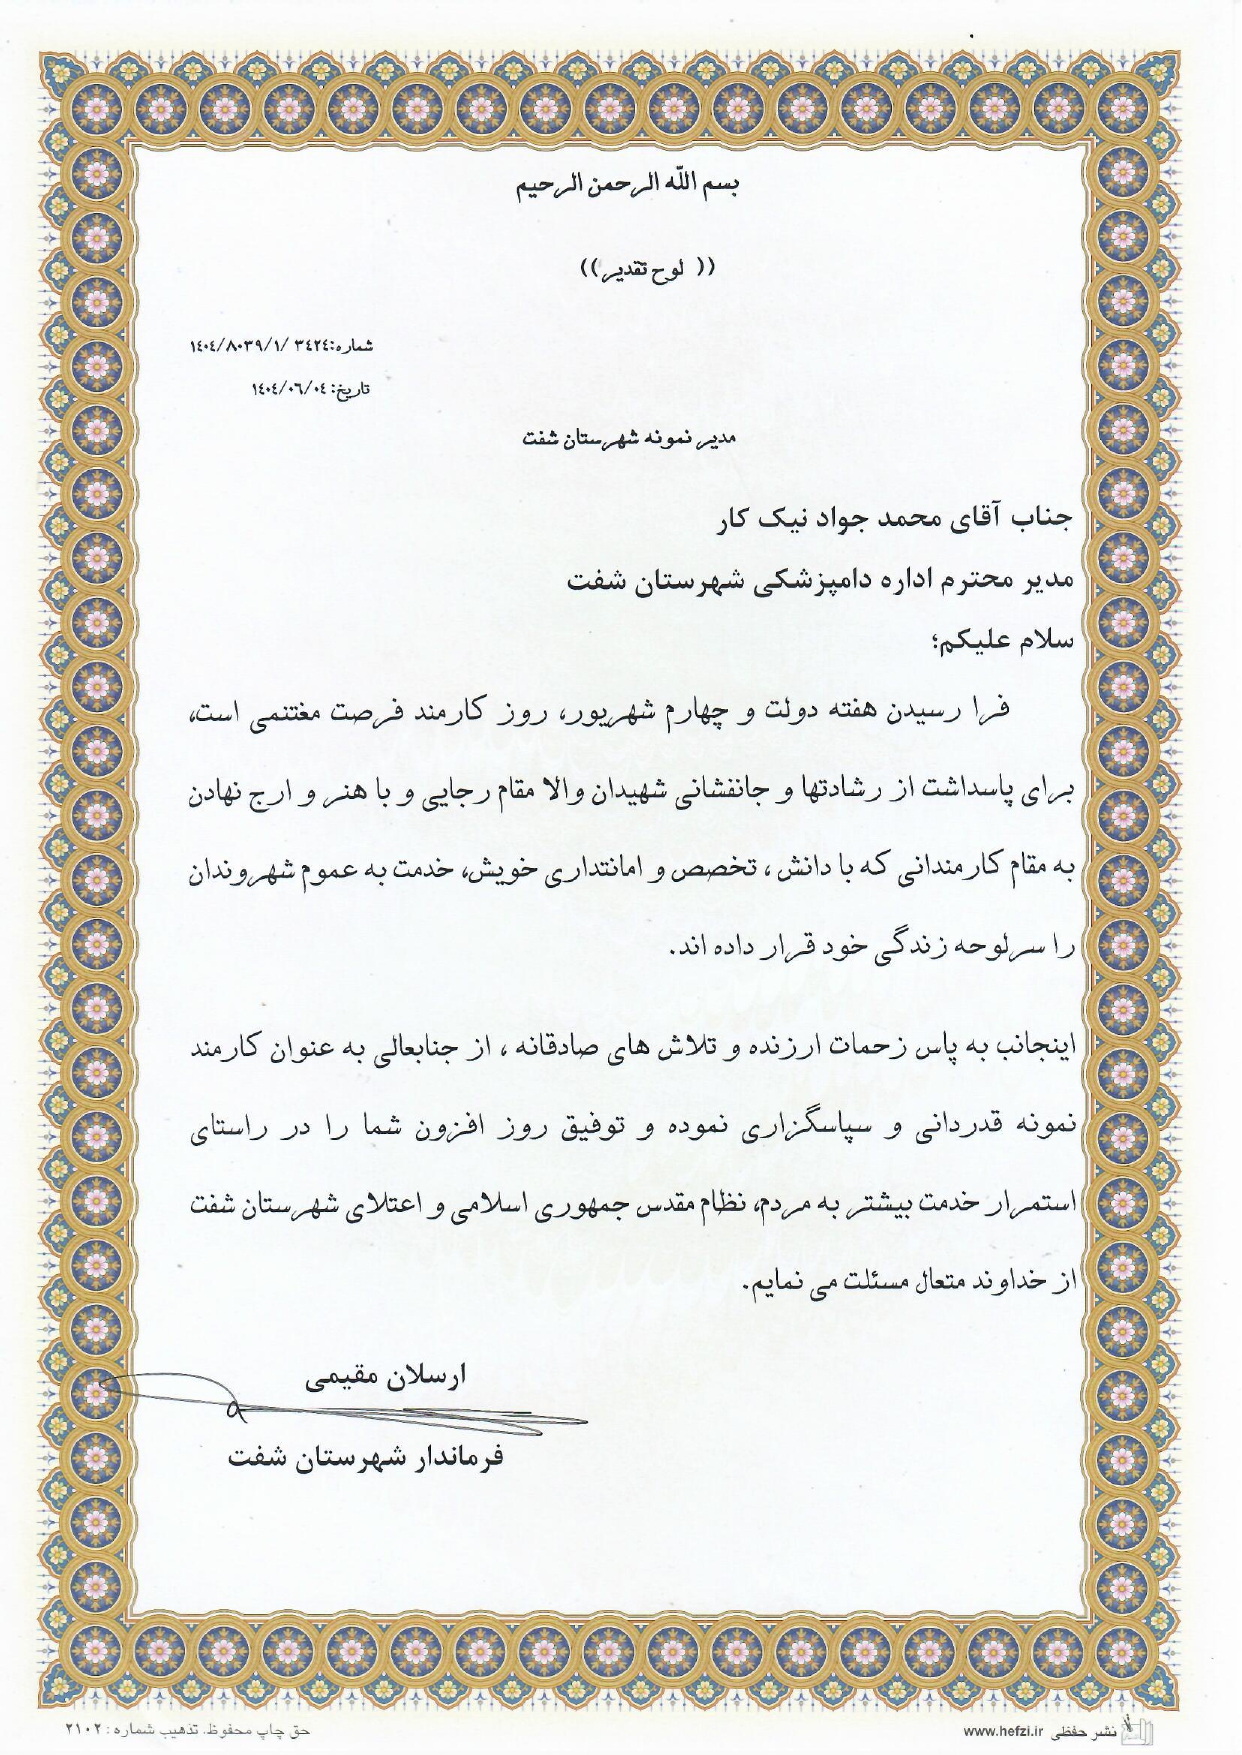 بسم الله الرحمن الرحیم
(( لوح تقدیر))
شماره:۳٤۲٤ /۱٤۰٤/۸۰۳۹/۱
تاریخ: ۱٤۰٤/۰٦/۰٤
مدیر نمونه شهرستان شفت
جناب آقای محمد جواد نیک کار
مدیر محترم اداره دامپزشکی شهرستان شفت
سلام علیکم؛
فرا رسیدن هفته دولت و چهارم شهریور، روز کارمند فرصت مغتنمی است،
برای پاسداشت از رشادتها و جانفشانی شهیدان والا مقام رجایی و با هنر و ارج نهادن
به مقام کارمندانی که با دانش ، تخصص و امانتداری خویش، خدمت به عموم شهروندان
را سرلوحه زندگی خود قرار داده اند.
اینجانب به پاس زحمات ارزنده و تلاش های صادقانه ، از جنابعالی به عنوان کارمند
نمونه قدردانی و سپاسگزاری نموده و توفیق روز افزون شما را در راستای
استمرار خدمت بیشتر به مردم، نظام مقدس جمهوری اسلامی و اعتلای شهرستان شفت
از خداوند متعال مسئلت می نمایم.
ارسلان مقیمی
فرماندار شهرستان شفت
نشر حفظی www.hefzi.ir
حق چاپ محفوظ. تذهیب شماره : ۲۱۰۲